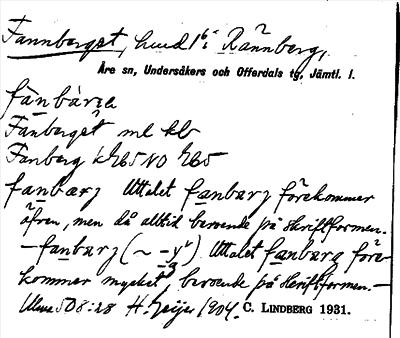 Fannberget, hmd 1⁶ i Rännberg,
Åre sn, Undersåkers och Offerdals tg, Jämtl. l.
fànbárɪa
Fanberget ml kb
Fanberg k GEG5 NO GEG5
fanbærj Uttalet fanbarj förekommer
äfven, men då alltid beroende på skriftformen.
– fanbarj (~ -yʳ) Uttalet fanbarg före-
kommer mycket, beroende på skriftformen. –
Ulma 508:28 H. Geijer 1904. C. LINDBERG 1931.